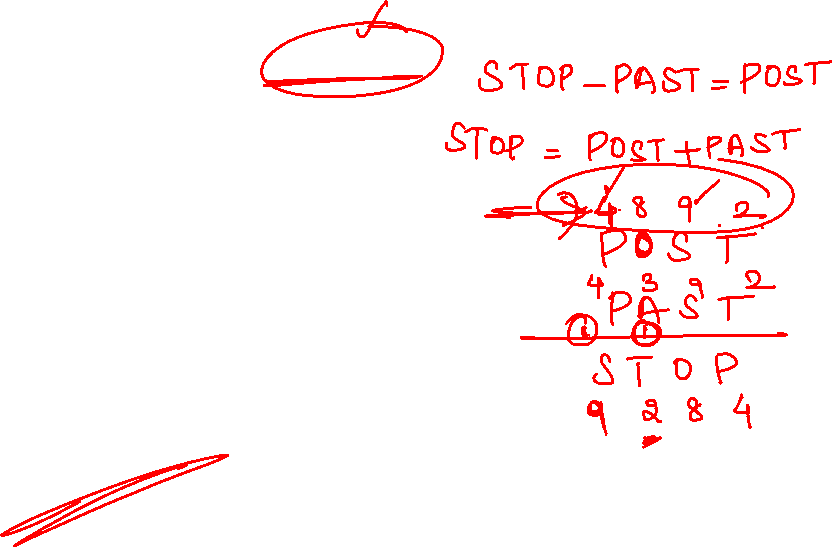 STOP - PAST = POST
STOP = POST + PAST
4 8 9 2
P O S T
4 3 9 2
P A S T
1 1
S T O P
9 2 8 4